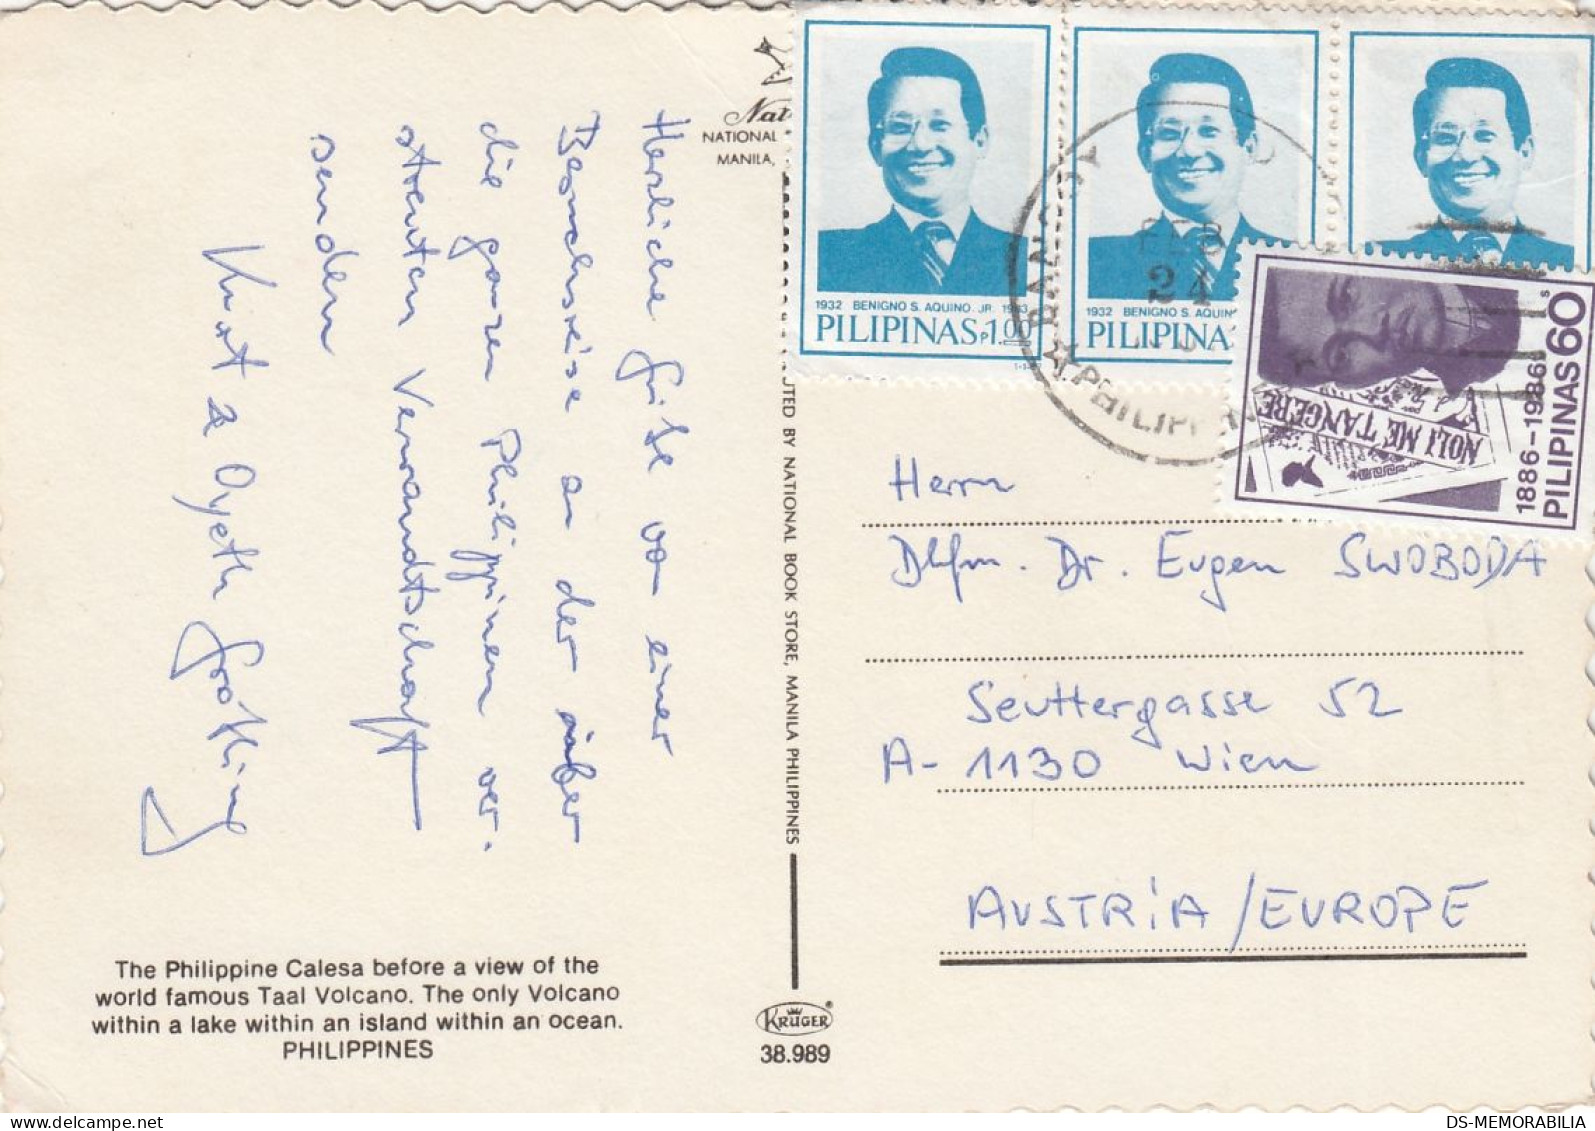 Herzliche Grüße von einer
Besuchsreise an der über
die ganzen Philippinen ver-
streuten Verwandtschaft
senden
Kurt & Ayeth
Nat
NATIONAL
MANILA,
UTED BY NATIONAL BOOK STORE, MANILA PHILIPPINES
1932 BENIGNO S. AQUINO, JR. 1983
PILIPINAS P1.00
1932 BENIGNO S. AQUIN
PILIPINAS
FEB
24
PHILIPPIN
NOLI ME TANGERE
1886-1986
PILIPINAS 60 s
Herrn
Dkfm. Dr. Eugen SWOBODA
Seuttergasse 52
A-1130 Wien
AUSTRiA/EUROPE
The Philippine Calesa before a view of the
world famous Taal Volcano. The only Volcano
within a lake within an island within an ocean.
PHILIPPINES
KRÜGER
38.989
DS-MEMORABILIA